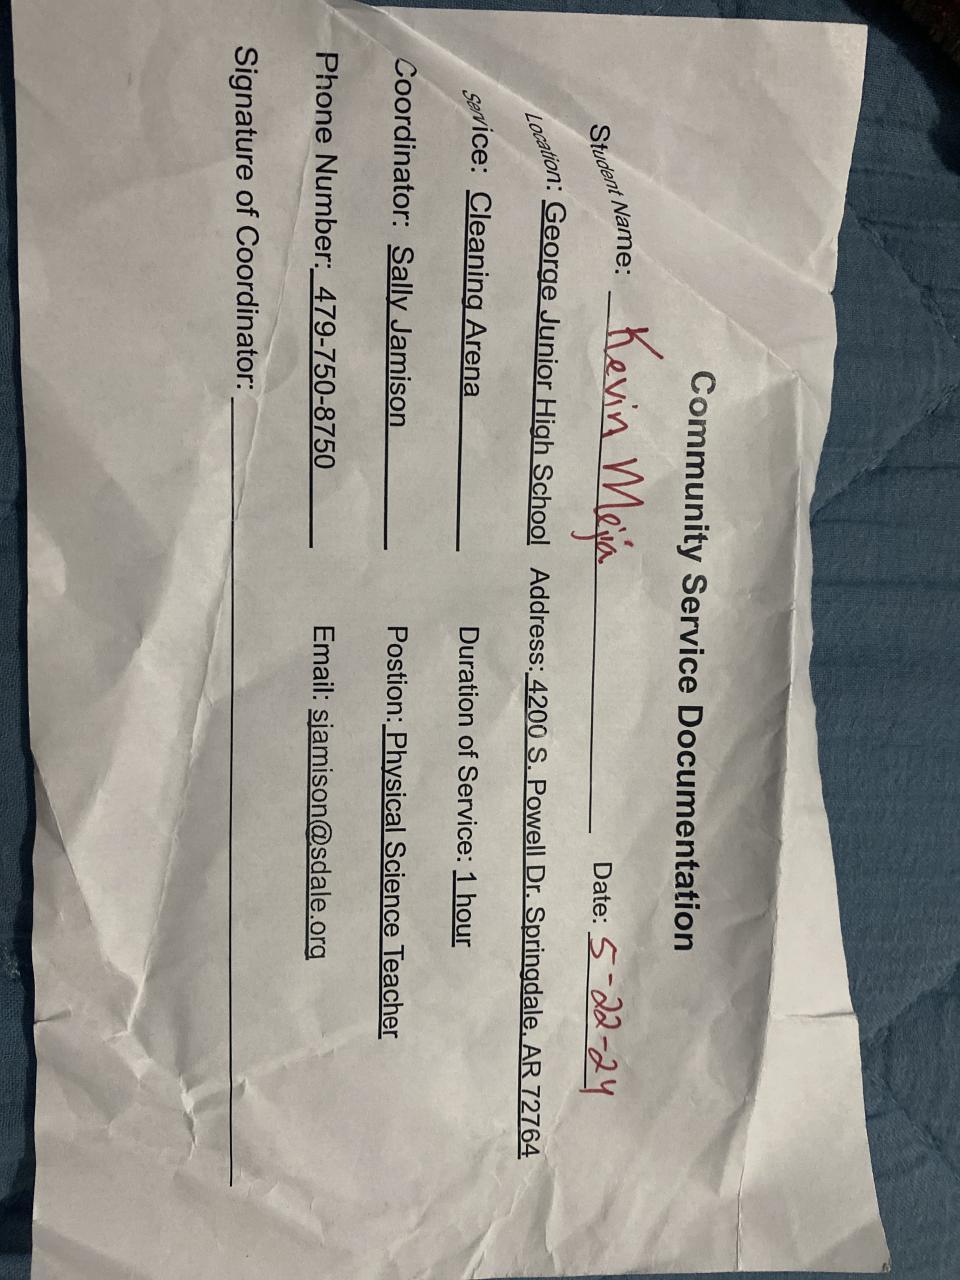 Community Service Documentation
Student Name: Kevin Mejia Date: 5-22-24
Location: George Junior High School Address: 4200 S. Powell Dr. Springdale, AR 72764
Service: Cleaning Arena Duration of Service: 1 hour
Coordinator: Sally Jamison Postion: Physical Science Teacher
Phone Number: 479-750-8750 Email: sjamison@sdale.org
Signature of Coordinator: